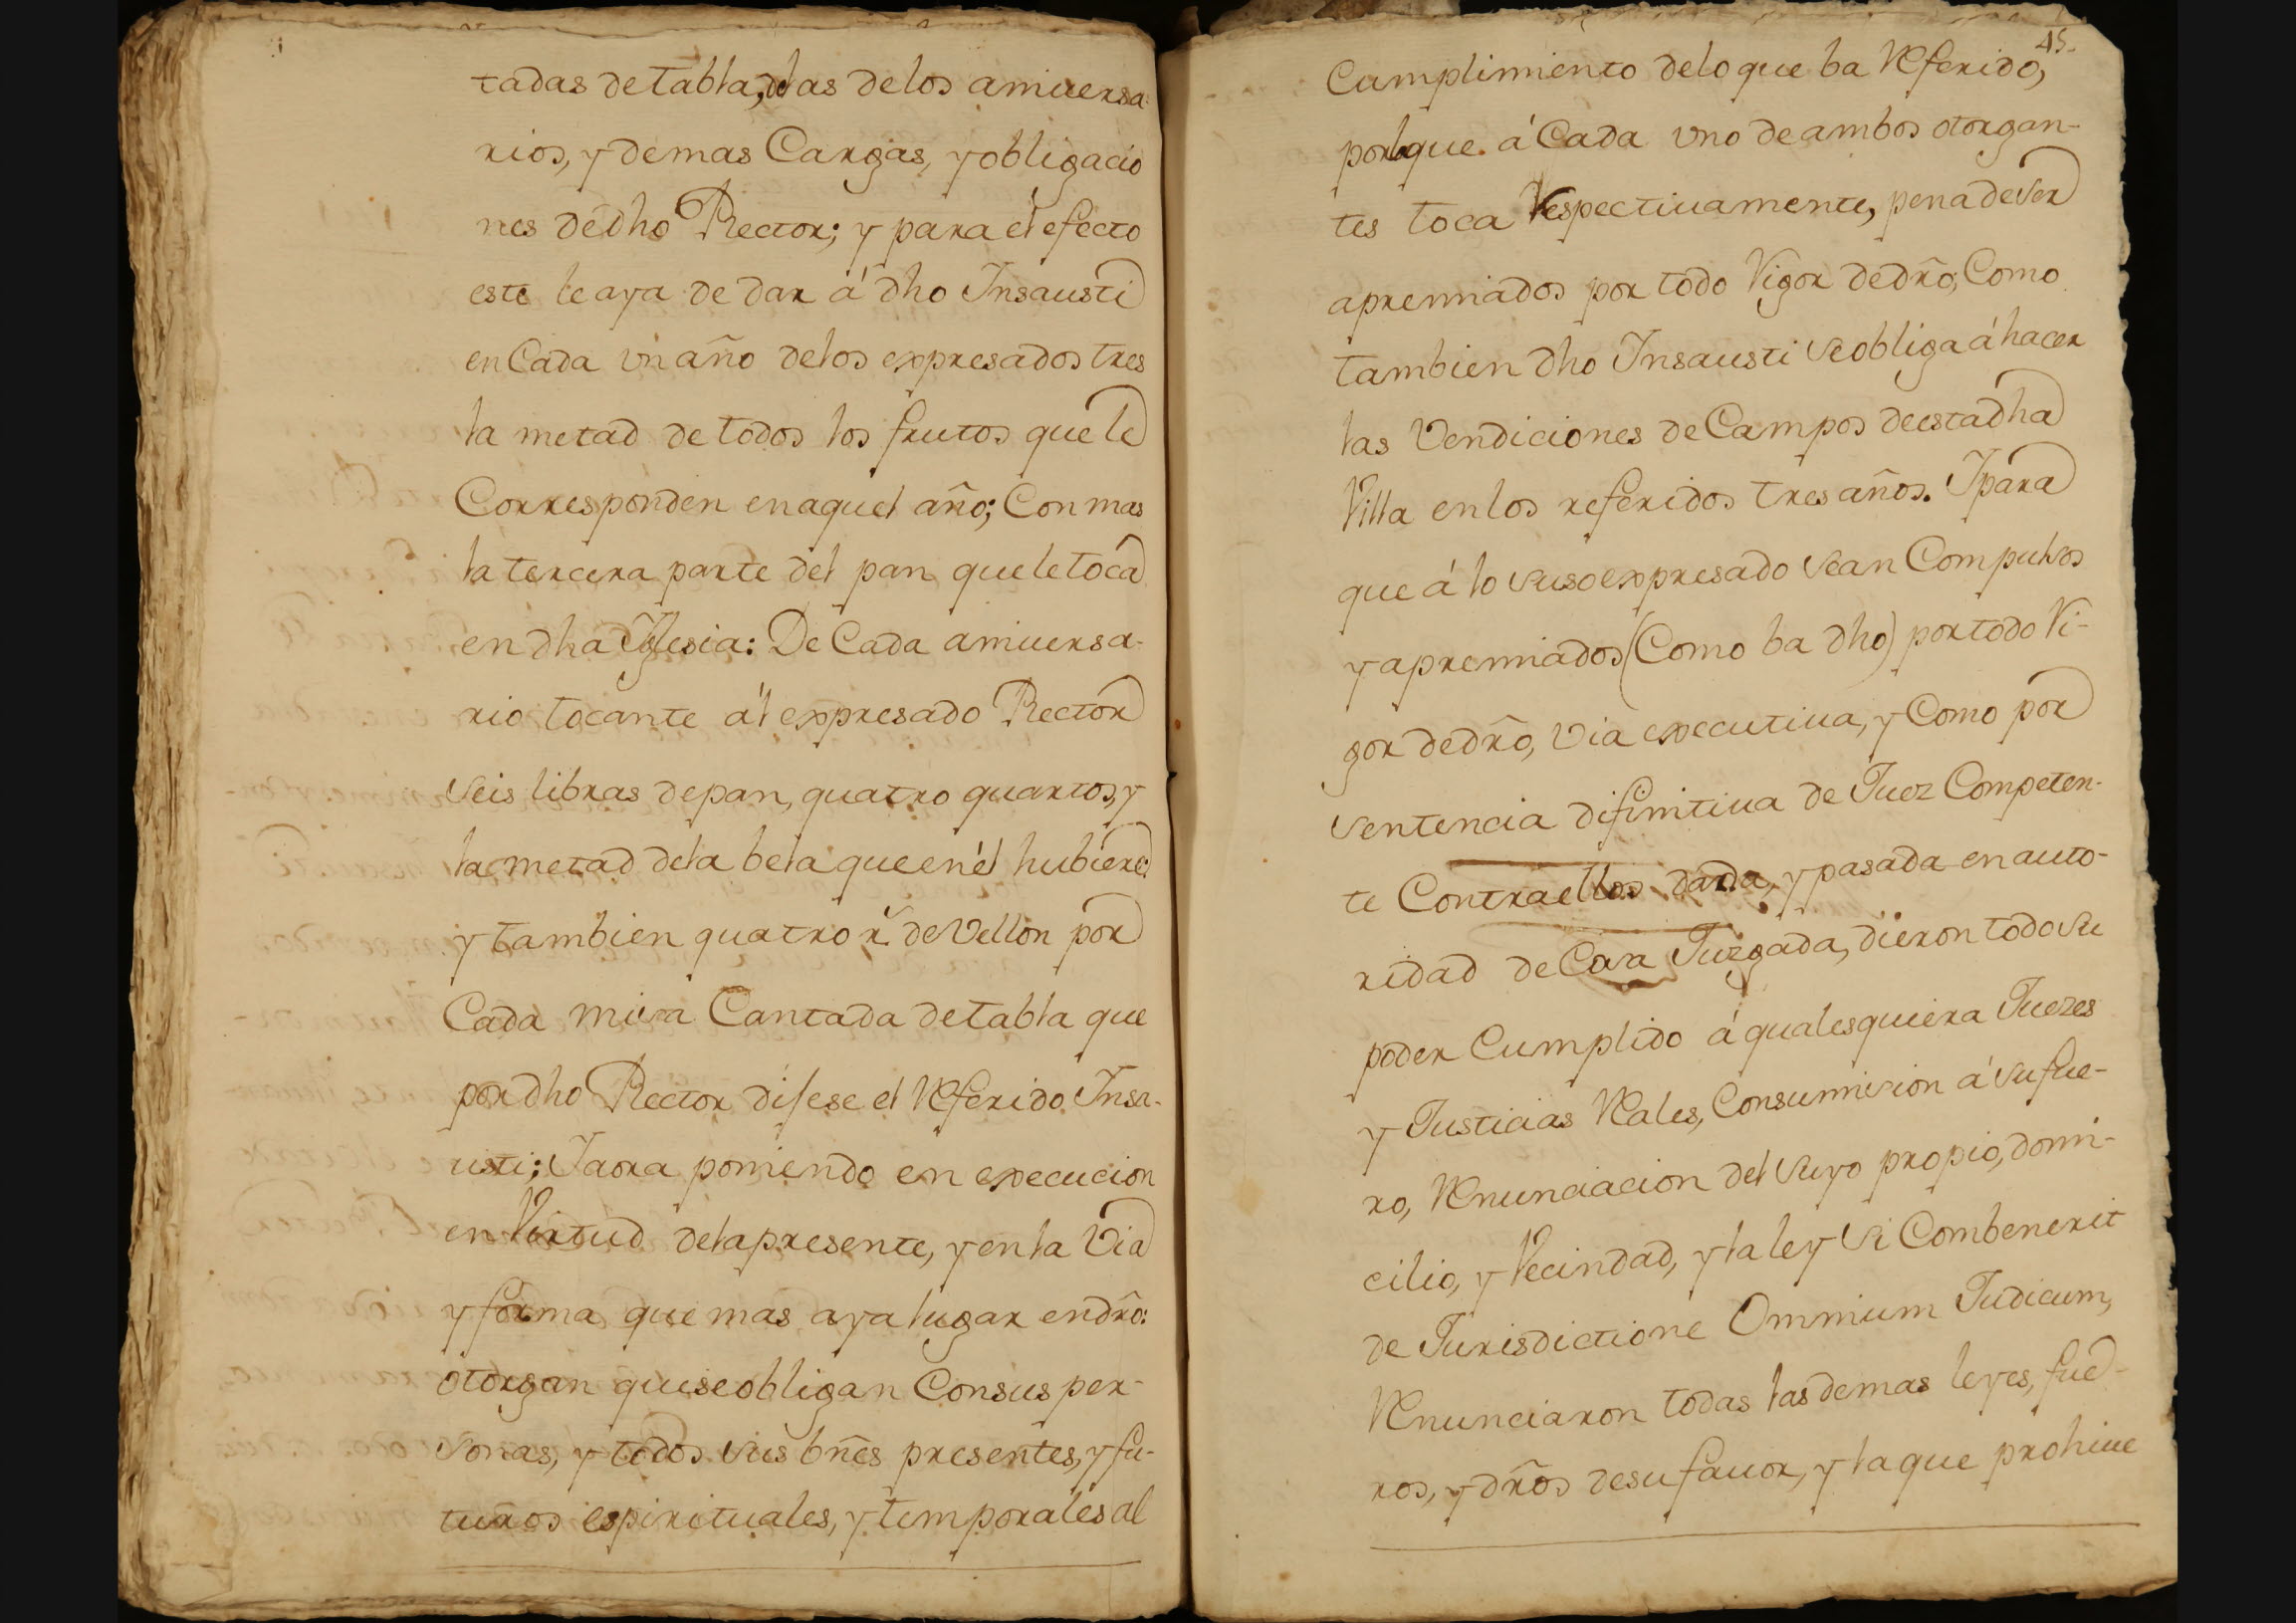 tadas de tabla, de las de los aniuersa-
rios, y demas Cargas, y obligacio
nes de dho Rector; y para el efecto
este le aya de dar á dho Insausti
en Cada un año de los expresados tres
la metad de todos los frutos que le
Corresponden en aquel año; Con mas
la tercera parte del pan que le toca
en dha Yglesia: De Cada aniuersa-
rio tocante ál expresado Rector
seis libras de pan, quatro quartos, y
la metad de la bela que en él hubiere:
y tambien quatro rs. de Vellon por
Cada missa Cantada de tabla que
por dho Rector dijese el Referido Insa-
usti; Y aora poniendo en execucion
en Virtud de la presente, y en la Via
y forma que mas aya lugar en dro:
otorgan que se obligan Con sus per-
sonas, y todos sus bñes presentes, y fu-
turos espirituales, y temporales al
45.
Cumplimiento de lo que ba Referido,
por lo que á Cada uno de ambos otorgan-
tes toca Respectiuamente, pena de ser
apremiados por todo Rigor de dr̃o, Como
tambien dho Insausti se obliga á hacer
las Vendiciones de Campos de esta dha
Villa en los referidos tres años. Y para
que á lo suso expresado sean Compulsos
y apremiados (Como ba dho) por todo Ri-
gor de dr̃o, via executiua, y Como por
sentencia difinitiua de Juez Competen-
te Contra ellos dada, y pasada en auto-
ridad de Cosa Juzgada, dieron todo su
poder Cumplido á qualesquiera Juezes
y Justicias Reales, Con sumision á su fue-
ro, Renunciacion del suyo propio, domi-
cilio, y Vecindad, y la ley si Combenerit
de Jurisdictione Omnium Judicum,
Renunciaron todas las demas leyes, fue-
ros, y dr̃os de su fauor, y la que prohiue